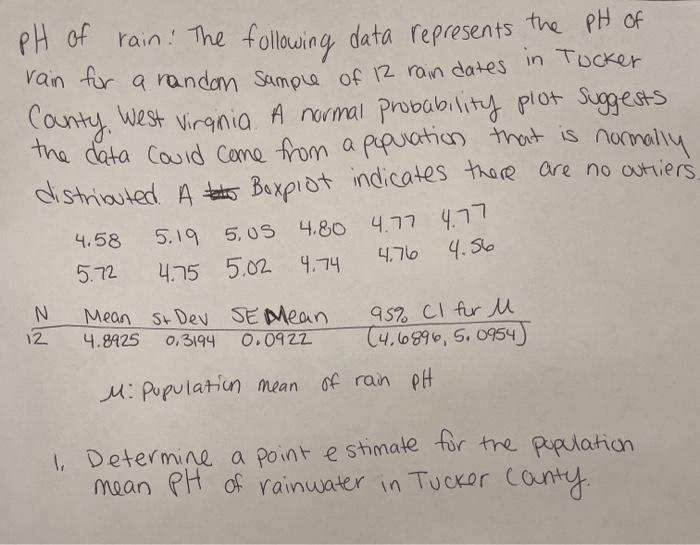 pH of rain: The following data represents the pH of
rain for a random sample of 12 rain dates in Tucker
County, West Virginia. A normal probability plot suggests
the data could come from a population that is normally
distributed. A Boxplot indicates there are no outliers.
4.58 5.19 5.05 4.80 4.77 4.77
5.72 4.75 5.02 4.74 4.76 4.56
N Mean St Dev SE Mean 95% CI for μ
12 4.8925 0.3194 0.0922 (4.6896, 5.0954)
μ: population mean of rain pH
1. Determine a point estimate for the population
mean pH of rainwater in Tucker County.